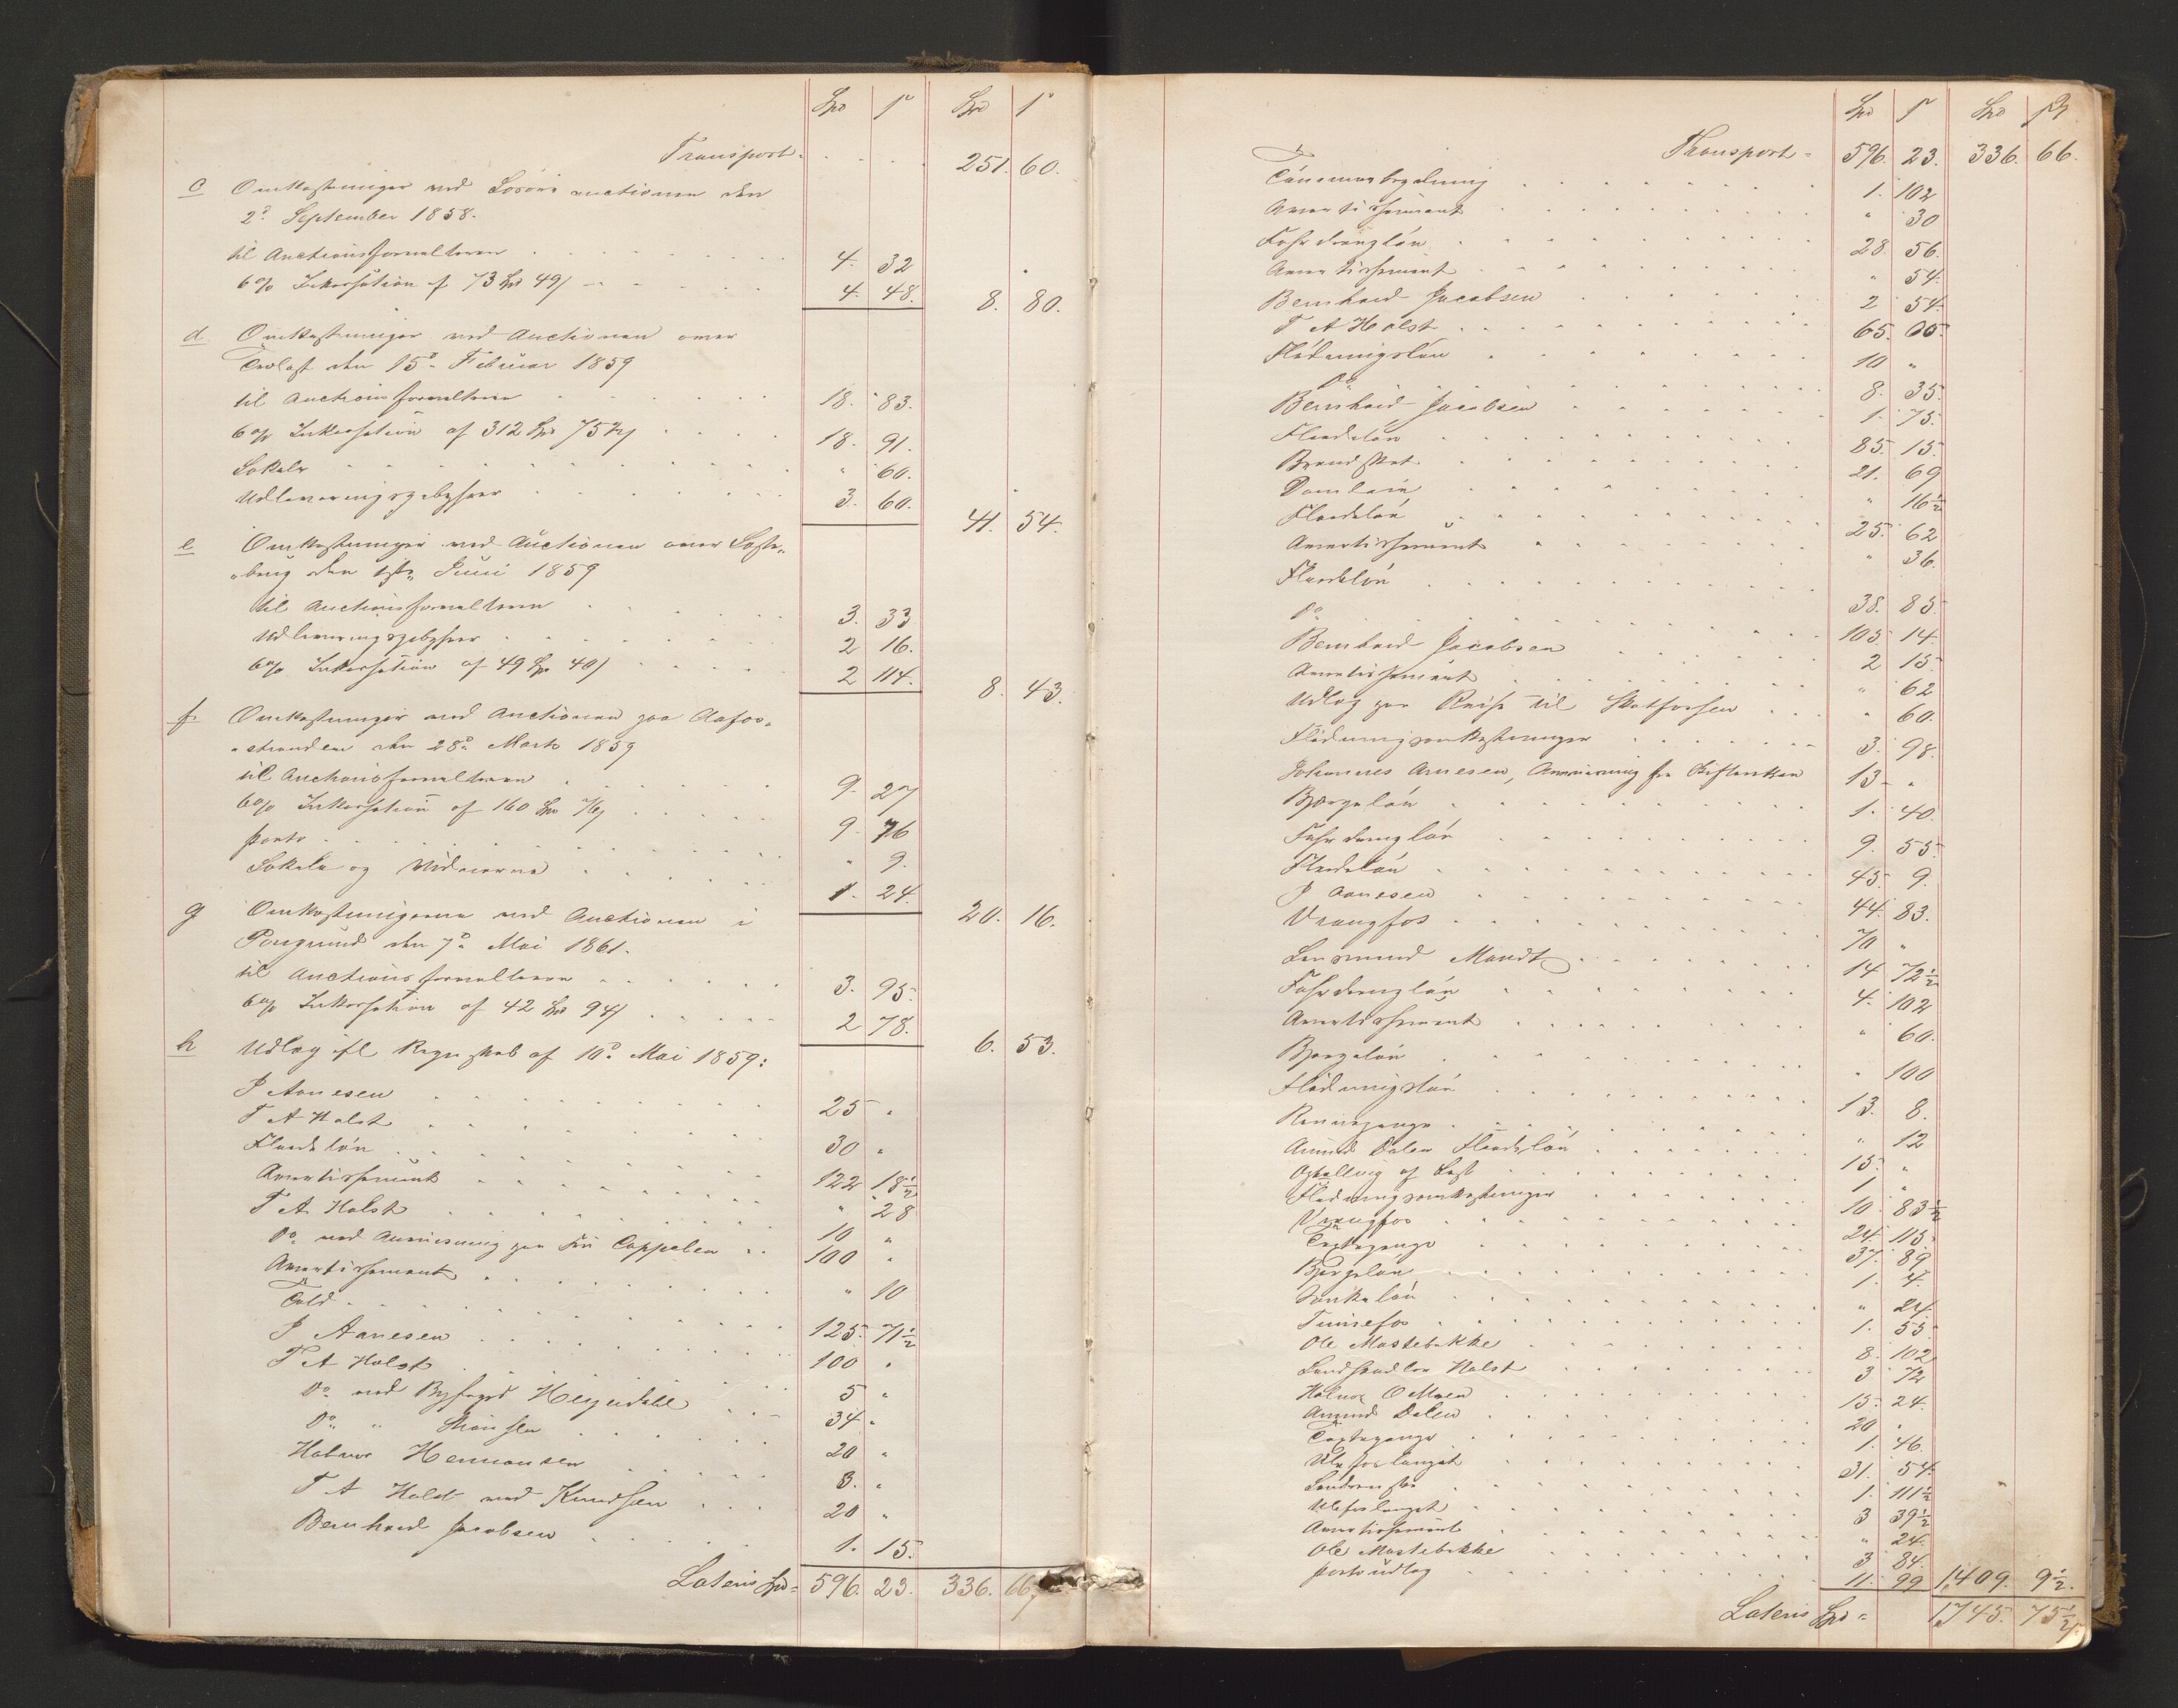 Spd ß Spd ß
Transport - 251. 60.
c Omkostninger ved Løsøreauctionen den
2den September 1858.
til Auctionsforvalteren 4. 32
6 % Inkassation af 73 Spd 49 ß 4. 48. 8. 80.
d Omkostninger ved Auctionen over
Trælast den 15de Februar 1859
til Auctionsforvalteren 18. 83.
6 % Inkassation af 312 Spd 75 ß 18. 91.
Lokale " 60.
Udleveringsgebyhrer 3. 60. 41. 54.
e Omkostninger ved Auctionen over
den 1ste Juni 1859
til Auctionsforvalteren 3. 33
Udleveringsgebyhrer 2 16.
6 % Inkassation af 49 Spd 40 ß 2 114. 8. 43.
f Omkostninger ved Auctionen paa Aafos-
"stranden den 28de Marts 1859
til Auctionsforvalteren 9. 27
6 % Inkassation af 160 Spd 9. 76
Porto " 9.
Lokale og Vidnerne 1. 24. 20. 16.
g Omkostningerne ved Auctionen i
Porsgrund den 7de Mai 1861.
til Auctionsforvalteren 3. 95.
6 % Inkassation af 42 Spd 94 ß 2 78. 6. 53.
h Udlæg ifl Regnskab af 10de Mai 1859:
J Aanesen 25 "
T A Holst 30 "
Flaadeløn 122 18½
Avertissement " 28
T A Holst 10 "
Do ved Anviisning paa Cappelen 100 "
Avertissement " 10
Told 125. 71½
J Aanesen 100 "
T A Holst 5 "
Do ved Byfoged Heyerdahl 34 "
Do " 20 "
Halvor Hermansen 8. "
T A Holst ved Knudsen 20 "
Bernhard Jacobsen 1. 15.
Lateris Spd = 596. 23. 336. 66
Spd ß Spd ß
Transport = 596. 23. 336. 66.
Tømmerbogning 1. 102
Avertissement " 30
Fløtningsløn 28. 56.
Avertissement " 54.
Bernhard Jacobsen 2 54.
T A Holst 65. 65.
Flødningsløn 10 "
Do 8. 35.
Bernhard Jacobsen 1. 75.
Flaadeløn 85. 15.
Brandskat 21. 69
" 16½
Flaadeløn 25. 62
Avertissement " 36.
Flaadeløn 38. 85
Do 105 14.
Bernhard Jacobsen 2 15.
Avertissement " 62
Udlæg paa Reise til Skotfossen " 60.
Flødningsomkostninger 3. 98.
Johannes Arnesen, Anviisning fra 13 "
Bjergeløn 1. 40.
9. 55.
Flaadeløn 45. 9.
J Aanesen 44. 83.
Vrangfos 70 "
Lensmand Mandt 14 72½
4. 102
Avertissement " 60.
Bjergeløn " 100
Flødningsløn 13. 8.
Rendepenge " 12
Amund Dalen Flaadeløn 15. "
Optælling af Last 1 "
Flødningsomkostninger 10. 83½
Vrangfos 24. 115
37. 89
Bjergeløn 1. 4.
" 24.
Tinnefos 1. 55.
Ole Mastebakke 8. 102
Landhandler Holst 3 72
Halvor O Moen 15. 24.
Amund Dalen 20 "
1. 46.
31. 54.
1. 111½
3 39½
Avertissement " 24.
Ole Mastebakke 3 84.
Portoudlæg 11. 99 1,409. 9½.
Lateris Spd = 1,745. 75½ ß